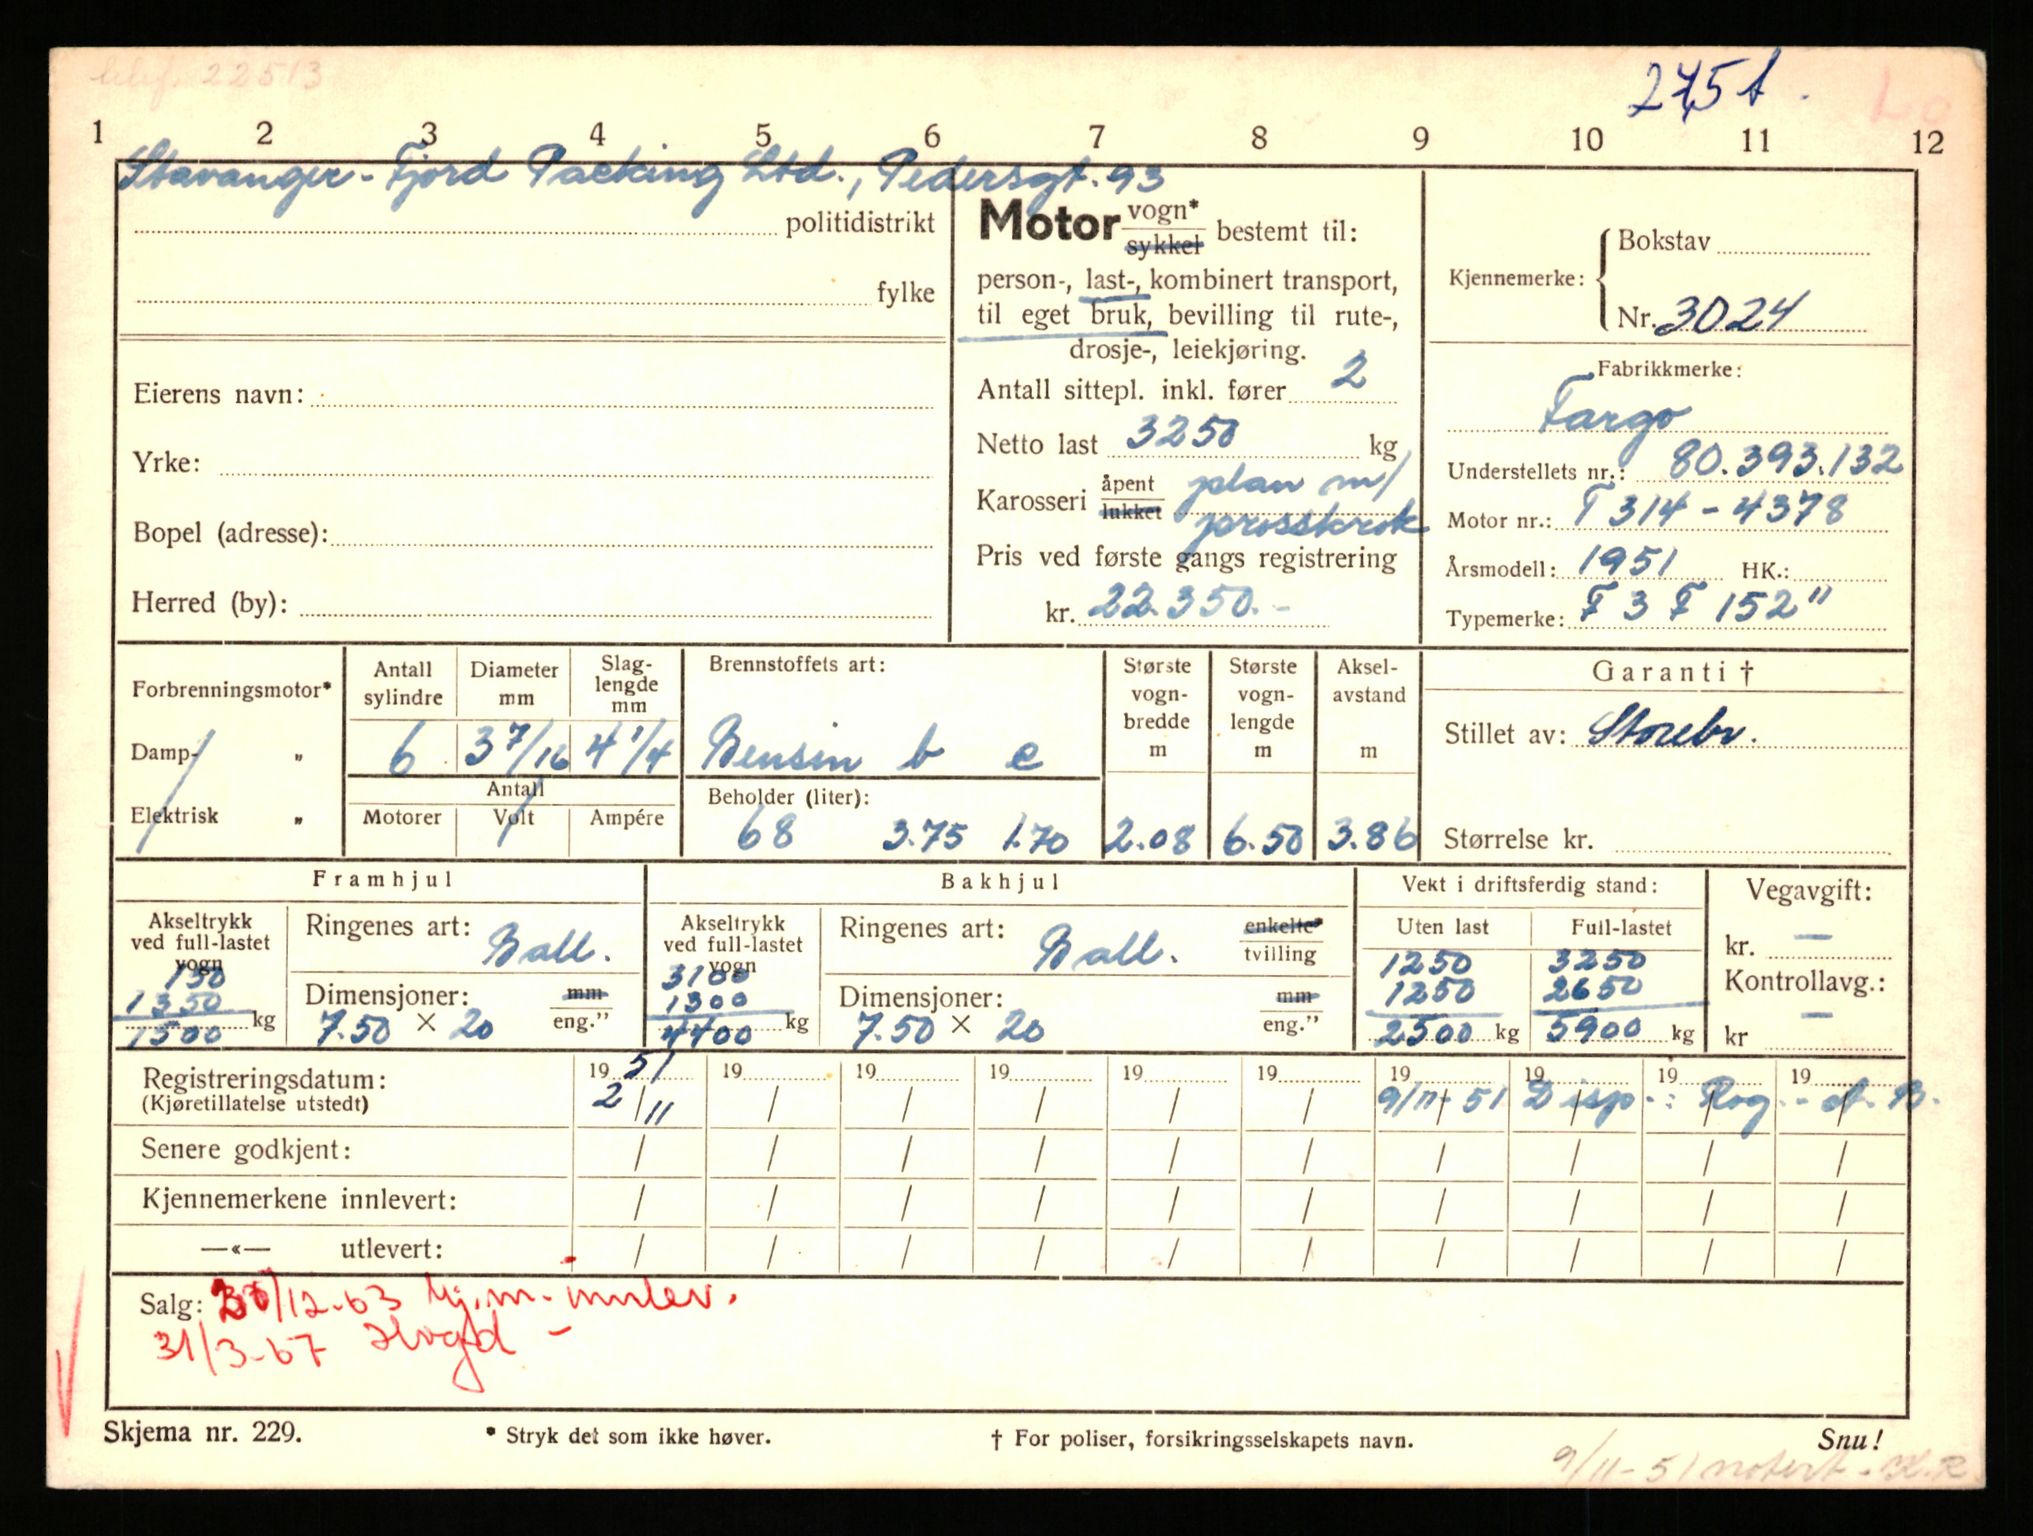 22513
275 t.
1 2 3 4 5 6 7 8 9 10 11 12
Stavanger-Fjord Packing Ltd., Pedersgt. 93
politidistrikt
fylke
Eierens navn:
Yrke:
Bopel (adresse):
Herred (by):
Motor vogn*
sykkel
bestemt til:
person-, last-, kombinert transport,
til eget bruk, bevilling til rute-,
drosje-, leiekjøring.
Antall sittepl. inkl. fører 2
Netto last 3250 kg
Karosseri åpent plan m/
lukket prosskrok
Pris ved første gangs registrering
kr. 22.350.-
Kjennemerke:
Bokstav
Nr. 3024
Fabrikkmerke:
Fargo
Understellets nr.: 80.393.132
Motor nr.: T 314 - 4378
Årsmodell: 1951 HK.:
Typemerke: F 3 F 152"
Forbrenningsmotor*
Damp- "
Elektrisk "
Antall sylindre
6
Diameter mm
3 7/16
Slag-lengde mm
4 1/4
Antall
Motorer Volt Ampére
Brennstoffets art:
Bensin b c
Beholder (liter):
68 3.75 1.70
Største vogn-bredde m
2.08
Største vogn-lengde m
6.50
Aksel-avstand m
3.86
Garanti †
Stillet av: Storebr.
Størrelse kr.
Framhjul
Akseltrykk
ved full-lastet
vogn
150
1350
1500 kg
Ringenes art: Ball.
Dimensjoner: mm
7.50 × 20 eng."
Bakhjul
Akseltrykk
ved full-lastet
vogn
3100
1300
4400 kg
Ringenes art: Ball. enkelte*
tvilling
Dimensjoner: mm
7.50 × 20 eng."
Vekt i driftsferdig stand:
Uten last Full-lastet
1250 3250
1250 2650
2500 kg 5900 kg
Vegavgift:
kr. —
Kontrollavg.:
kr —
Registreringsdatum: 19 51 19 19 19 19 19 19 19 19 19
(Kjøretillatelse utstedt) 2/11 / / / / / 9/11-51 Disp.: Rog. - A. B.
Senere godkjent: / / / / / / / / / /
Kjennemerkene innlevert: / / / / / / / / / /
—«— utlevert: / / / / / / / / / /
Salg: 30/12-63 kj.m. innlev.
31/3-67 Hvgd -
Skjema nr. 229.
* Stryk det som ikke høver.
† For poliser, forsikringsselskapets navn.
Snu!
9/11-51 notert. K.R.